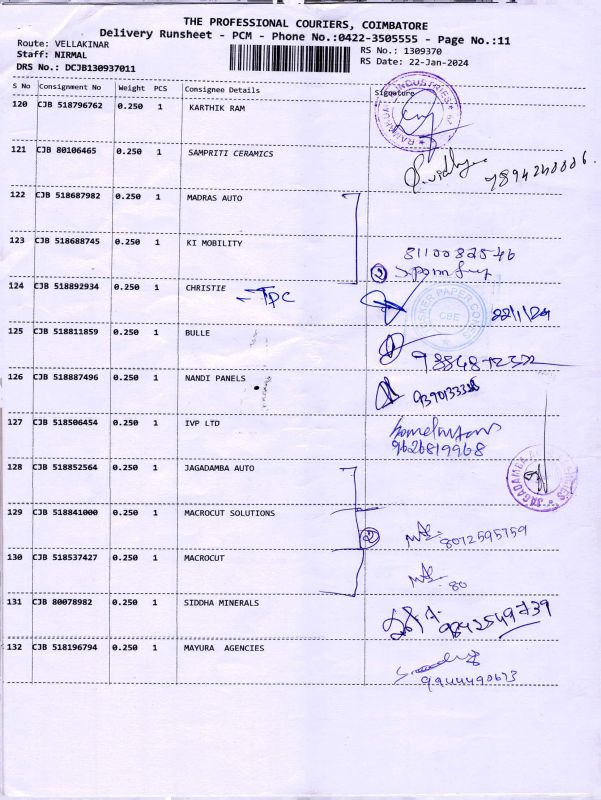 THE PROFESSIONAL COURIERS, COIMBATORE
Delivery Runsheet - PCM - Phone No.:0422-3505555 - Page No.:11
Route: VELLAKINAR
Staff: NIRMAL
DRS No.: DCJB130937011
RS No.: 1309370
RS Date: 22-Jan-2024
S No Consignment No Weight PCS Consignee Details Signature
120 CJB 518796762 0.250 1 KARTHIK RAM
121 CJB 80106465 0.250 1 SAMPRITI CERAMICS
122 CJB 518687982 0.250 1 MADRAS AUTO
123 CJB 518688745 0.250 1 KI MOBILITY
8110082546
2
124 CJB 518892934 0.250 1 CHRISTIE
TPC
CBE
22/1/24
125 CJB 518811859 0.250 1 BULLE
126 CJB 518887496 0.250 1 NANDI PANELS
127 CJB 518506454 0.250 1 IVP LTD
9626819968
128 CJB 518852564 0.250 1 JAGADAMBA AUTO
129 CJB 518841000 0.250 1 MACROCUT SOLUTIONS
2
8072595759
130 CJB 518537427 0.250 1 MACROCUT
80
131 CJB 80078982 0.250 1 SIDDHA MINERALS
9842549739
132 CJB 518196794 0.250 1 MAYURA AGENCIES
9944490673